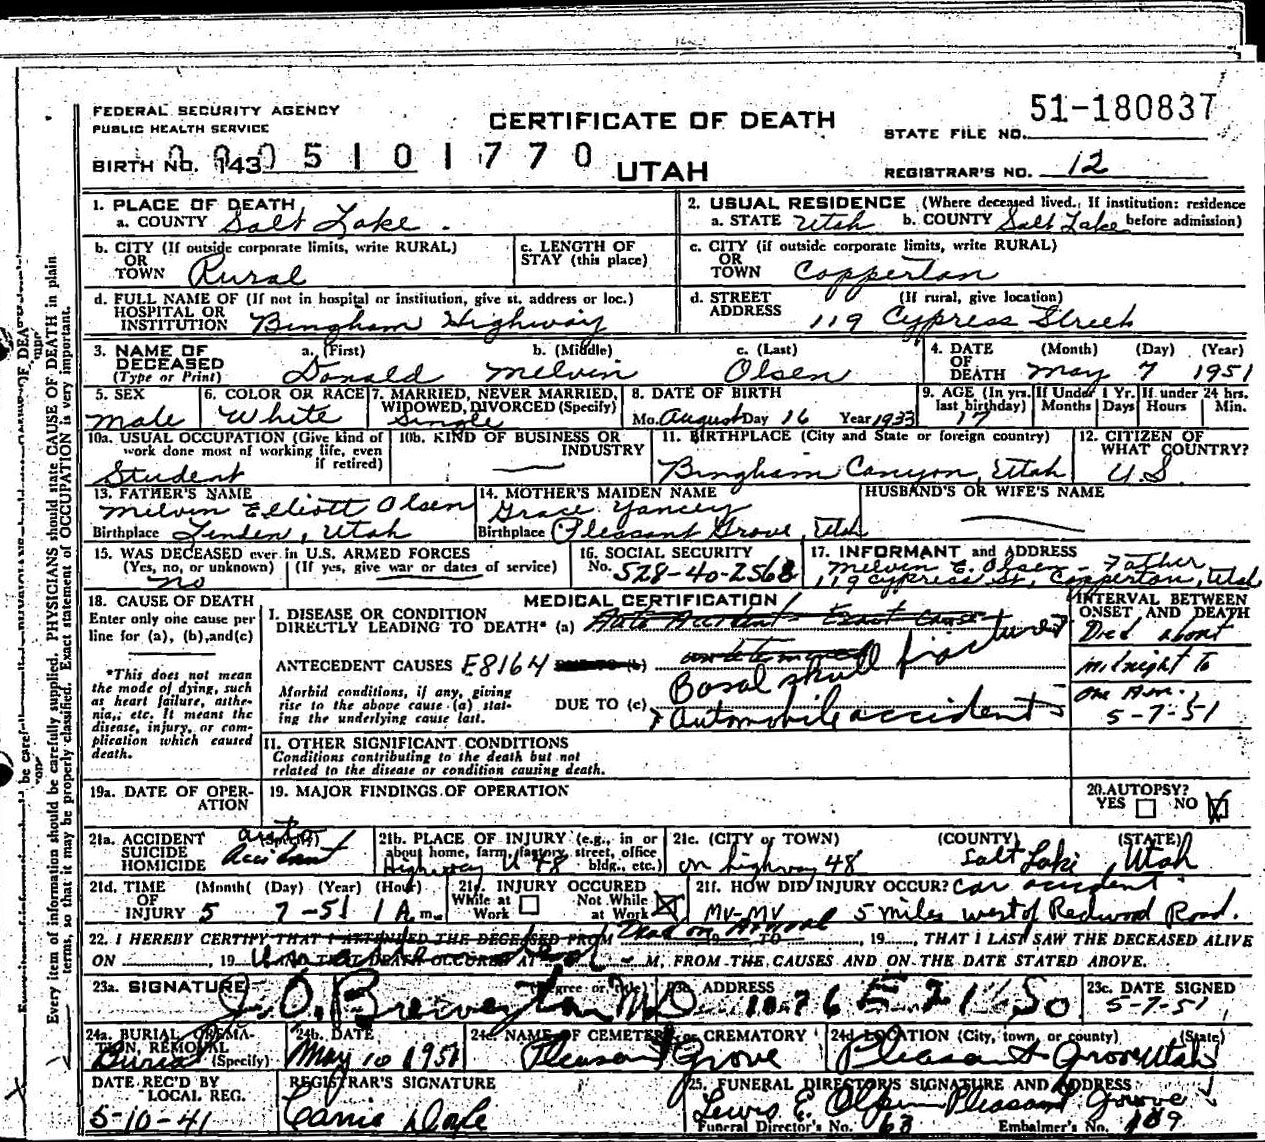 FEDERAL SECURITY AGENCY
PUBLIC HEALTH SERVICE
CERTIFICATE OF DEATH
51-180837
STATE FILE NO.
BIRTH NO. 143 0005101770
UTAH
REGISTRAR'S NO. 12
1. PLACE OF DEATH
a. COUNTY Salt Lake.
2. USUAL RESIDENCE (Where deceased lived. If institution: residence before admission)
a. STATE Utah b. COUNTY Salt Lake
b. CITY (If outside corporate limits, write RURAL) OR TOWN Rural
c. LENGTH OF STAY (this place)
c. CITY (if outside corporate limits, write RURAL) OR TOWN Copperton
d. FULL NAME OF (If not in hospital or institution, give st. address or loc.) HOSPITAL OR INSTITUTION Bingham Highway
d. STREET ADDRESS (If rural, give location) 119 Cypress Street
3. NAME OF DECEASED (Type or Print)
a. (First) Donald b. (Middle) Melvin c. (Last) Olsen
4. DATE OF DEATH (Month) (Day) (Year) May 7 1951
5. SEX Male
6. COLOR OR RACE White
7. MARRIED, NEVER MARRIED, WIDOWED, DIVORCED (Specify) Single
8. DATE OF BIRTH Mo. August Day 16 Year 1933
9. AGE (In yrs. last birthday) 17
If Under 1 Yr. Months Days
If under 24 hrs. Hours Min.
10a. USUAL OCCUPATION (Give kind of work done most of working life, even if retired) Student
10b. KIND OF BUSINESS OR INDUSTRY
11. BIRTHPLACE (City and State or foreign country) Bingham Canyon, Utah
12. CITIZEN OF WHAT COUNTRY? U.S.
13. FATHER'S NAME Melvin Elliott Olsen
Birthplace Linden, Utah
14. MOTHER'S MAIDEN NAME Grace Yancey
Birthplace Pleasant Grove, Utah
HUSBAND'S OR WIFE'S NAME
15. WAS DECEASED ever in U.S. ARMED FORCES
(Yes, no, or unknown) (If yes, give war or dates of service)
no
16. SOCIAL SECURITY No. 528-40-2568
17. INFORMANT and ADDRESS
Melvin E. Olsen - Father
119 Cypress St, Copperton, Utah
18. CAUSE OF DEATH
Enter only one cause per line for (a), (b), and (c)
*This does not mean the mode of dying, such as heart failure, asthenia, etc. It means the disease, injury, or complication which caused death.
MEDICAL CERTIFICATION
I. DISEASE OR CONDITION DIRECTLY LEADING TO DEATH* (a) Auto Accident - Exact Cause
ANTECEDENT CAUSES E8164 DUE TO (b)
Basal skull fracture
Morbid conditions, if any, giving rise to the above cause (a) stating the underlying cause last.
DUE TO (c) Automobile accident
INTERVAL BETWEEN ONSET AND DEATH
Died about
midnight to
one A.m.
5-7-51
II. OTHER SIGNIFICANT CONDITIONS
Conditions contributing to the death but not related to the disease or condition causing death.
19a. DATE OF OPERATION
19. MAJOR FINDINGS OF OPERATION
20. AUTOPSY? YES NO
21a. ACCIDENT SUICIDE HOMICIDE (Specify) auto accident
21b. PLACE OF INJURY (e.g., in or about home, farm, factory, street, office bldg., etc.) Highway U 48
21c. (CITY or TOWN) (COUNTY) (STATE)
on highway 48 Salt Lake Utah
21d. TIME OF INJURY (Month) (Day) (Year) (Hour) 5 7-51 1 A m.
INJURY OCCURED While at Work Not While at Work
21f. HOW DID INJURY OCCUR? car accident
MV-MV 5 miles west of Redwood Road.
22. I HEREBY CERTIFY THAT I ATTENDED THE DECEASED FROM Dead on Arrival 19 TO , 19 , THAT I LAST SAW THE DECEASED ALIVE
ON , 19 THAT DEATH OCCURED AT M., FROM THE CAUSES AND ON THE DATE STATED ABOVE.
23a. SIGNATURE (Degree or title) 23b. ADDRESS 23c. DATE SIGNED
M.D. 1076 E 21 So 5-7-51
24a. BURIAL, CREMATION, REMOVAL (Specify) Burial
24b. DATE May 10 1951
24c. NAME OF CEMETERY or CREMATORY Pleasant Grove
24d LOCATION (City, town, or county) (State) Pleasant Grove Utah
DATE REC'D BY LOCAL REG. 5-10-41
REGISTRAR'S SIGNATURE
25. FUNERAL DIRECTOR'S SIGNATURE AND ADDRESS
Lewis E. Olpin Pleasant Grove
Funeral Director's No. 63 Embalmer's No. 189
Every item of information should be carefully supplied. PHYSICIANS should state CAUSE OF DEATH in plain
terms, so that it may be properly classified. Exact statement of OCCUPATION is very important.